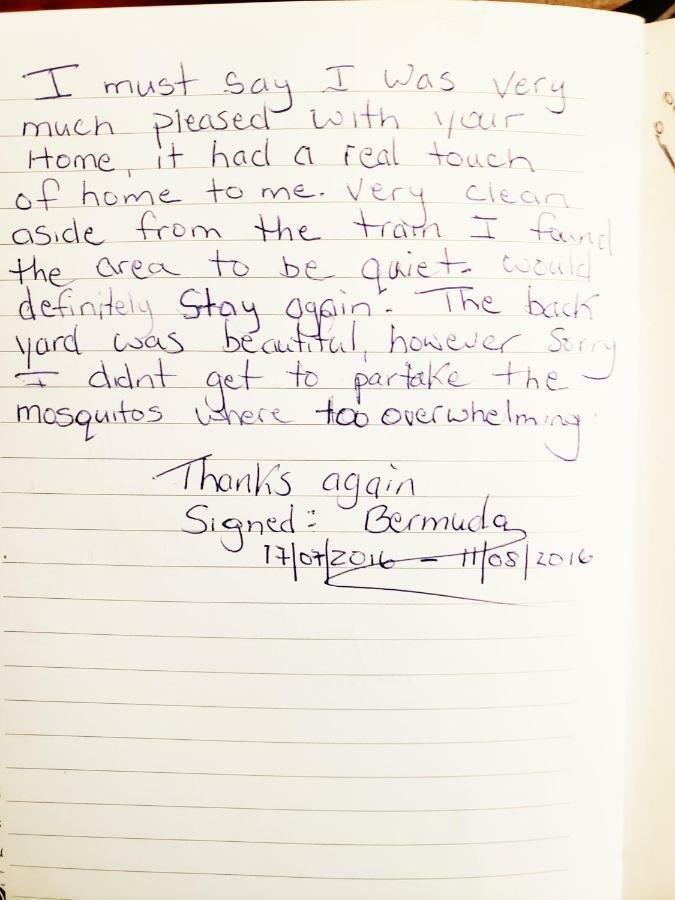 I must say I was very
much pleased with your
Home, it had a real touch
of home to me. Very clean
aside from the train I found
the area to be quiet. would
definitely Stay again. The back
yard was beautiful, however Sorry
I didnt get to partake the
mosquitos where too overwhelming.
Thanks again
Signed: Bermuda
17/07/2016 - 11/08/2016